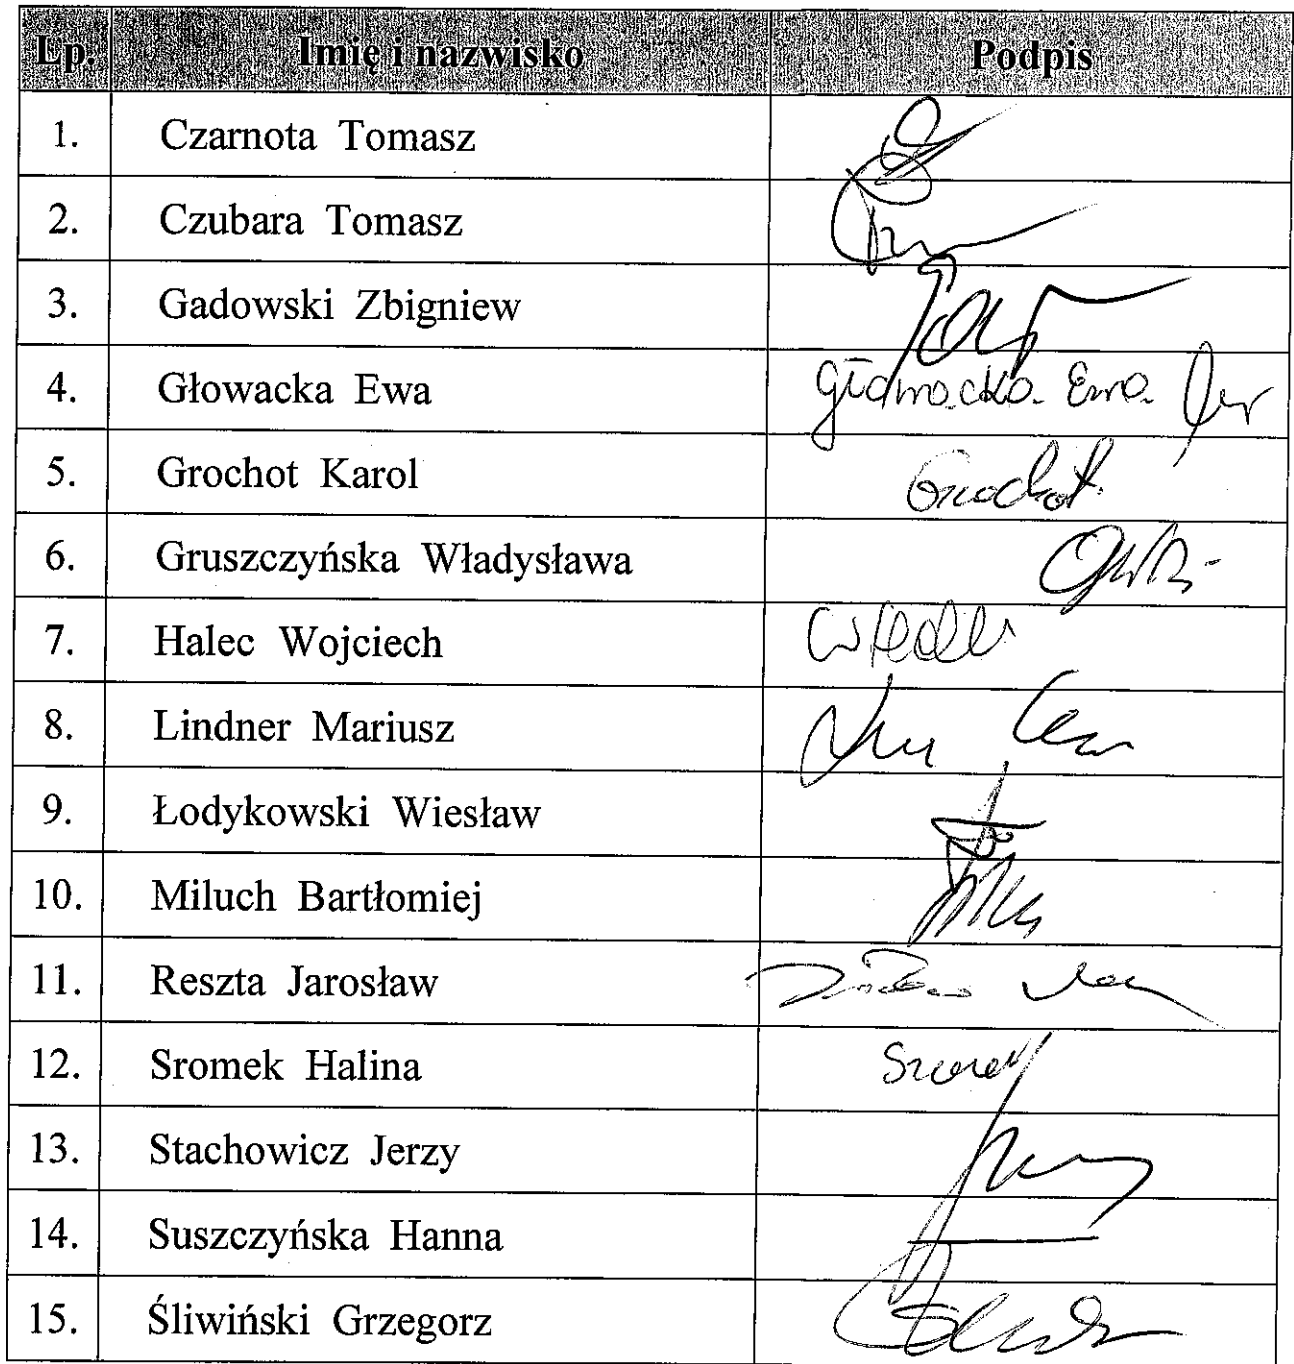 Lp. Imię i nazwisko Podpis
1. Czarnota Tomasz
2. Czubara Tomasz
3. Gadowski Zbigniew
4. Głowacka Ewa Głowacka Ewa
5. Grochot Karol Grochot
6. Gruszczyńska Władysława
7. Halec Wojciech
8. Lindner Mariusz
9. Łodykowski Wiesław
10. Miluch Bartłomiej
11. Reszta Jarosław
12. Sromek Halina
13. Stachowicz Jerzy
14. Suszczyńska Hanna
15. Śliwiński Grzegorz